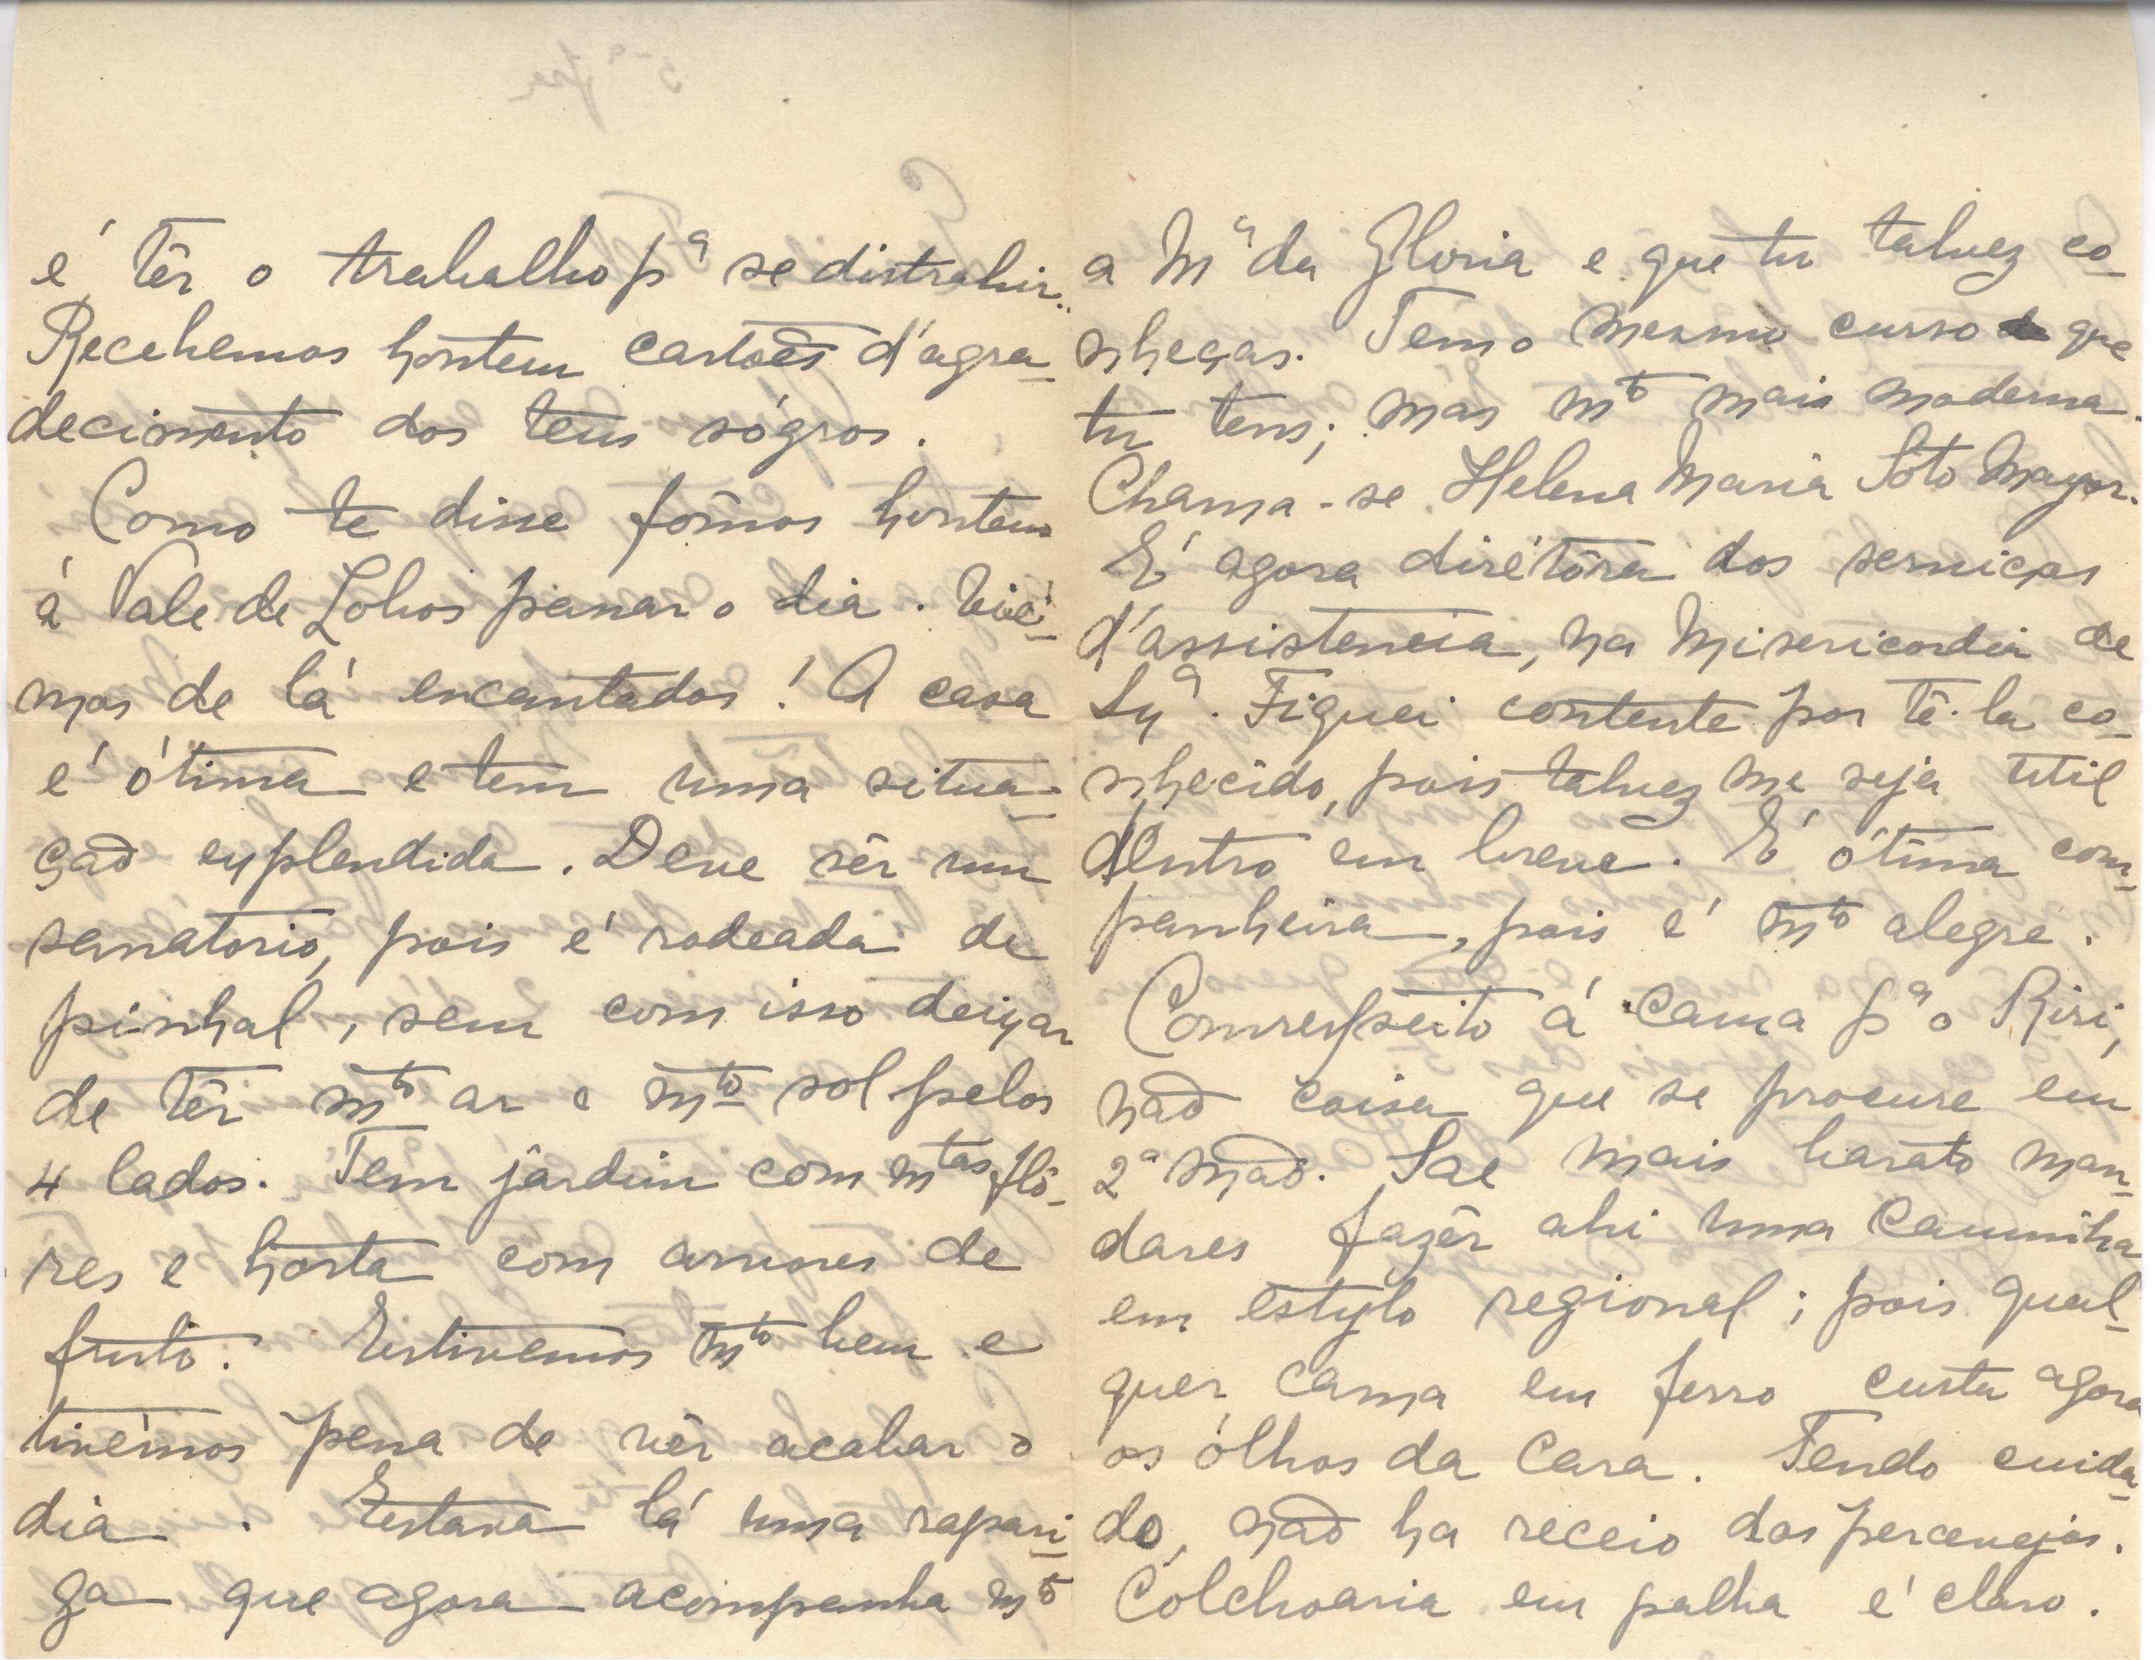 é têr o trabalho pª se distrahir.
Recebemos hontem cartões d'agra-
decimento dos teus sógros.
Como te disse fômos hontem
á Vale de Lobos passar o dia. Vié-
mos de lá encantados! A casa
é ótima e tem uma situa-
ção explendida. Deve sêr um
sanatorio, pois é rodeada de
pinhal, sem com isso deixar
de têr mto ar e mto sol pelos
4 lados. Tem jardim com mtas flô-
res e horta com arvores de
fruto. Estivemos mto bem e
tivémos pena de vêr acabar o
dia. Estava lá uma rapari-
ga que agora acompanha mto
a Mª da Gloria e que tu talvez co-
nheças. Tem o mesmo curso que
tu tens; mas mto mais moderna.
Chama-se Helena Maria Soto Mayor.
É agora diretôra dos serviços
d'assistencia, na Misericordia de
Lxª. Fiquei contente por tê-la co-
nhecido, pois talvez me seja util
dentro em breve. É ótima com-
panheira, pois é mto alegre.
Com respeito á cama pª o Riri,
não coisa que se procure em
2ª mão. Sae mais barato man-
dares fazêr ahi uma caminha
em estylo regional; pois qual-
quer cama em ferro custa agora
os ólhos da cara. Tendo cuida-
do, não ha receio dos percevejos.
Colchoaria em palha é claro.